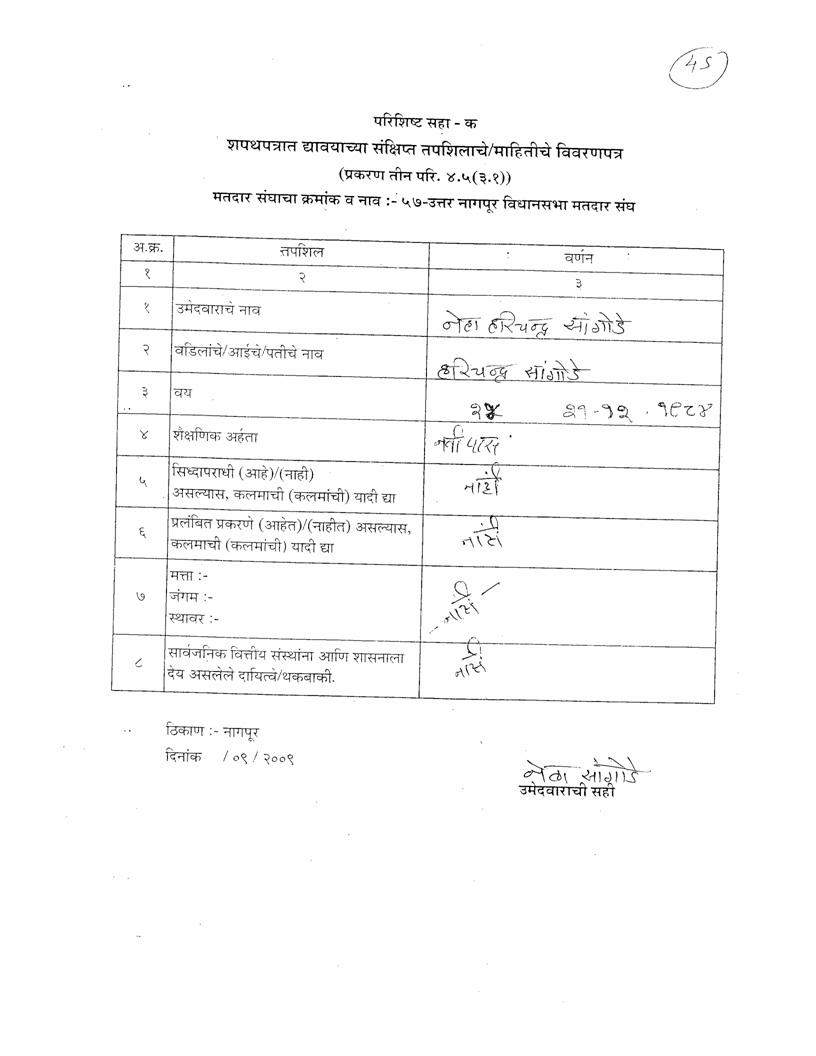 45
परिशिष्ट सहा - क
शपथपत्रात द्यावयाच्या संक्षिप्त तपशिलाचे/माहितीचे विवरणपत्र
(प्रकरण तीन परि. ४.५(३.१))
मतदार संघाचा क्रमांक व नाव :- ५७-उत्तर नागपूर विधानसभा मतदार संघ
अ.क्र. तपशिल वर्णन
१ २ ३
१ उमेदवाराचे नाव नेहा हरिचन्द्र सांगोडे
२ वडिलांचे/आईचे/पतीचे नाव हरिचन्द्र सांगोडे
३ वय २४ २१-१२.१९८४
४ शैक्षणिक अर्हता नवी पास
५ सिध्दापराधी (आहे)/(नाही)
असल्यास, कलमाची (कलमांची) यादी द्या नाही
६ प्रलंबित प्रकरणे (आहेत)/(नाहीत) असल्यास,
कलमाची (कलमांची) यादी द्या
मत्ता :-
७ जंगम :-
स्थावर :-
८ सार्वजनिक वित्तीय संस्थांना आणि शासनाला
देय असलेले दायित्वे/थकबाकी.
ठिकाण :- नागपूर
दिनांक / ०९ / २००९
नेहा सांगोडे
उमेदवाराची सही